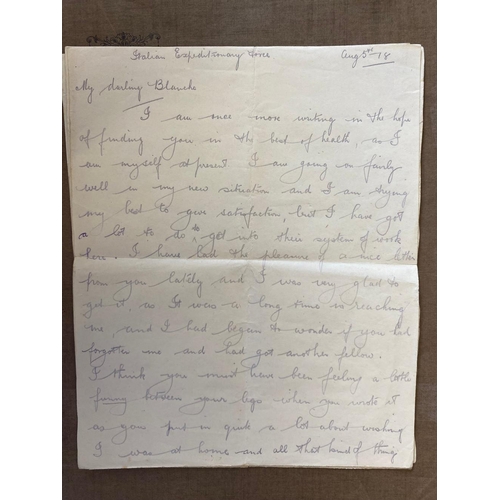 Italian Expeditionary Force Aug 5th - 18
My darling Blanche
I am once more writing in the hope
of finding you in the best of health, as I
am myself at present. I am going on fairly
well in my new situation and I am trying
my best to give satisfaction, but I have got
a lot to do to get into their system of work
here. I have had the pleasure of a nice letter
from you lately and I was very glad to
get it, as it was a long time in reaching
me, and I had began to wonder if you had
forgotten me and had got another fellow.
I think you must have been feeling a little
funny between your legs when you wrote it
as you put in quite a lot about wishing
I was at home and all that kind of thing